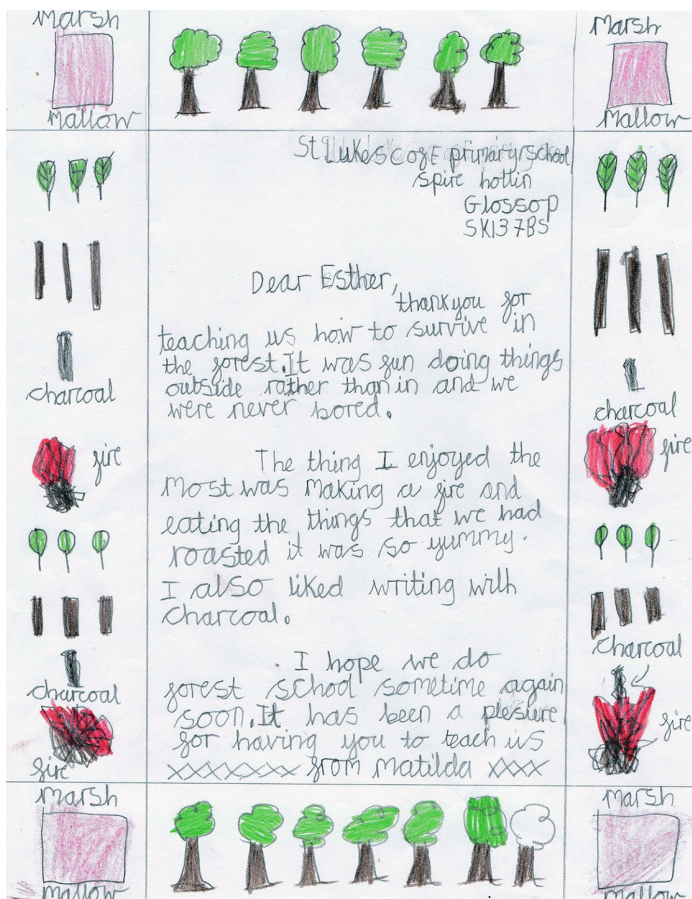 Marsh
Mallow
Marsh
Mallow
St Lukes C of E primary school
spire hollin
Glossop
SK137BS
Dear Esther,
thankyou for
teaching us how to survive in
the forest. It was fun doing things
outside rather than in and we
were never bored.
The thing I enjoyed the
Most was Making a fire and
eating the things that we had
roasted it was so yummy.
I also liked writing with
charcoal.
I hope we do
forest school sometime again
soon. It has been a plesure
for having you to teach us
xxxxxxxxxx from Matilda xxxx
charcoal
fire
charcoal
fire
charcoal
fire
charcoal
fire
Marsh
Mallow
Marsh
Mallow